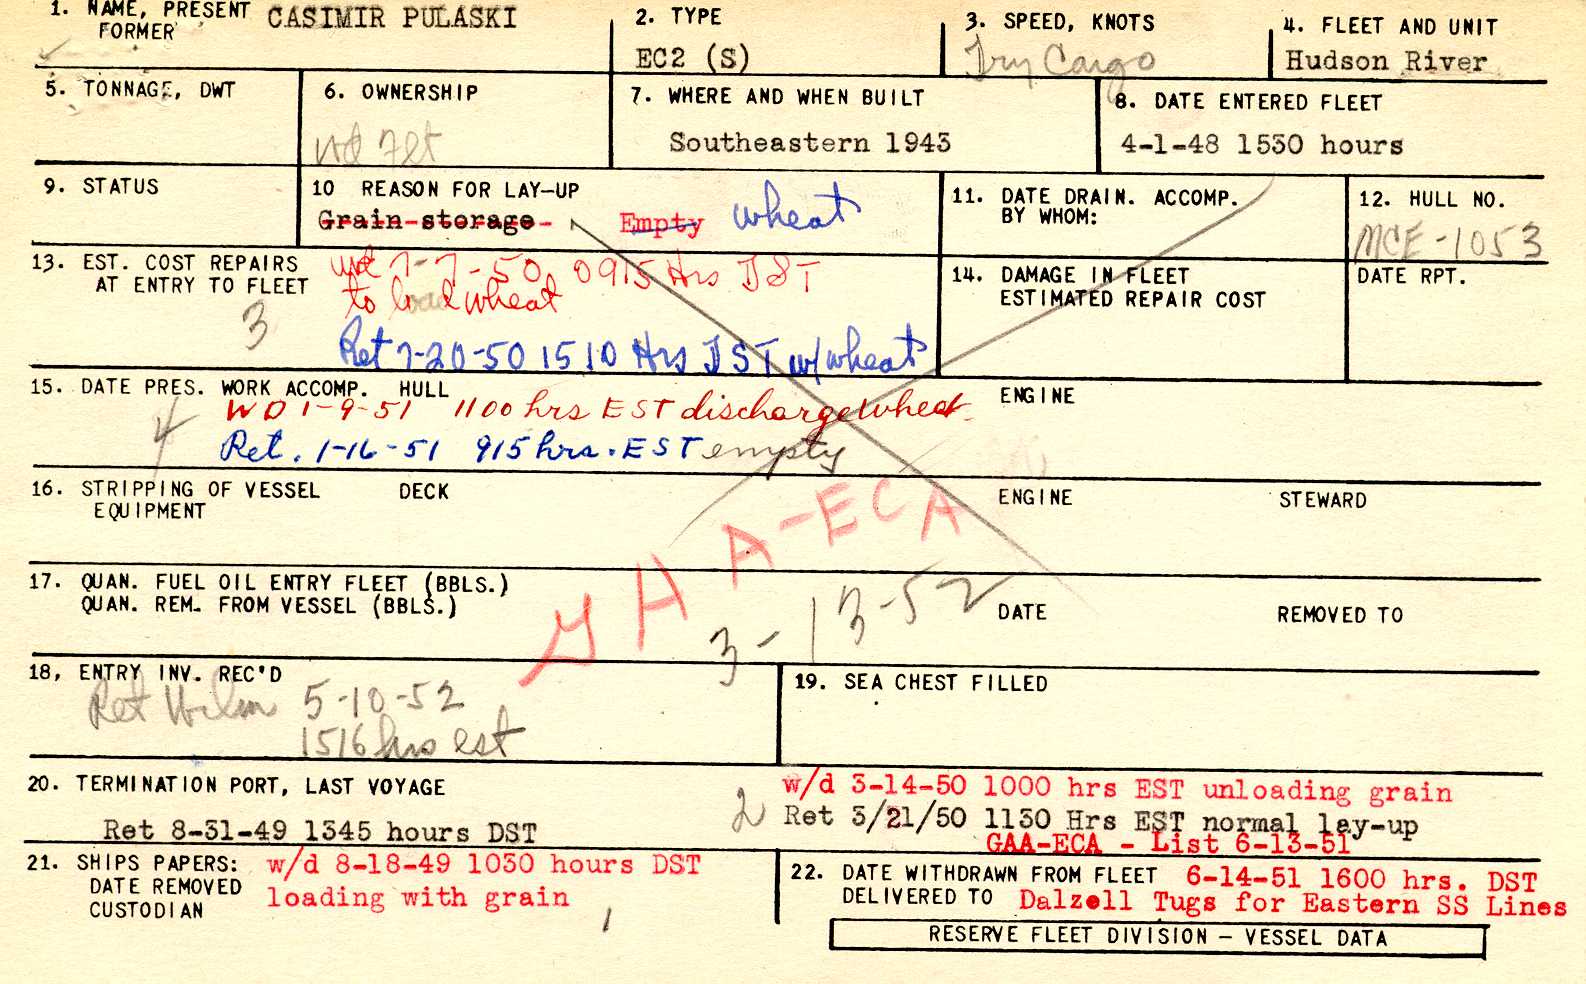 1. NAME, PRESENT CASIMIR PULASKI
FORMER
2. TYPE
EC2 (S)
3. SPEED, KNOTS
Dry Cargo
4. FLEET AND UNIT
Hudson River
5. TONNAGE, DWT
6. OWNERSHIP
7. WHERE AND WHEN BUILT
Southeastern 1943
8. DATE ENTERED FLEET
4-1-48 1530 hours
9. STATUS
10 REASON FOR LAY-UP
Grain storage Empty wheat
11. DATE DRAIN. ACCOMP.
BY WHOM:
12. HULL NO.
MCE-1053
13. EST. COST REPAIRS
AT ENTRY TO FLEET
3
wd 7-7-50, 0915 Hrs DST
to load wheat
Ret 7-20-50 1510 Hrs DST w/wheat
14. DAMAGE IN FLEET
ESTIMATED REPAIR COST
DATE RPT.
15. DATE PRES. WORK ACCOMP. HULL
ENGINE
4
WD 1-9-51 1100 hrs EST discharge wheat
Ret. 1-16-51 915 hrs. EST empty
16. STRIPPING OF VESSEL DECK
EQUIPMENT
ENGINE
STEWARD
GAA-ECA
17. QUAN. FUEL OIL ENTRY FLEET (BBLS.)
QUAN. REM. FROM VESSEL (BBLS.)
DATE
REMOVED TO
3-13-52
18, ENTRY INV. REC'D
Ret Wilm 5-10-52
1516 hrs est
19. SEA CHEST FILLED
20. TERMINATION PORT, LAST VOYAGE
Ret 8-31-49 1345 hours DST
w/d 3-14-50 1000 hrs EST unloading grain
2 Ret 3/21/50 1130 Hrs EST normal lay-up
GAA-ECA - List 6-13-51
21. SHIPS PAPERS: w/d 8-18-49 1030 hours DST
DATE REMOVED loading with grain
CUSTODIAN
1
22. DATE WITHDRAWN FROM FLEET 6-14-51 1600 hrs. DST
DELIVERED TO Dalzell Tugs for Eastern SS Lines
RESERVE FLEET DIVISION - VESSEL DATA